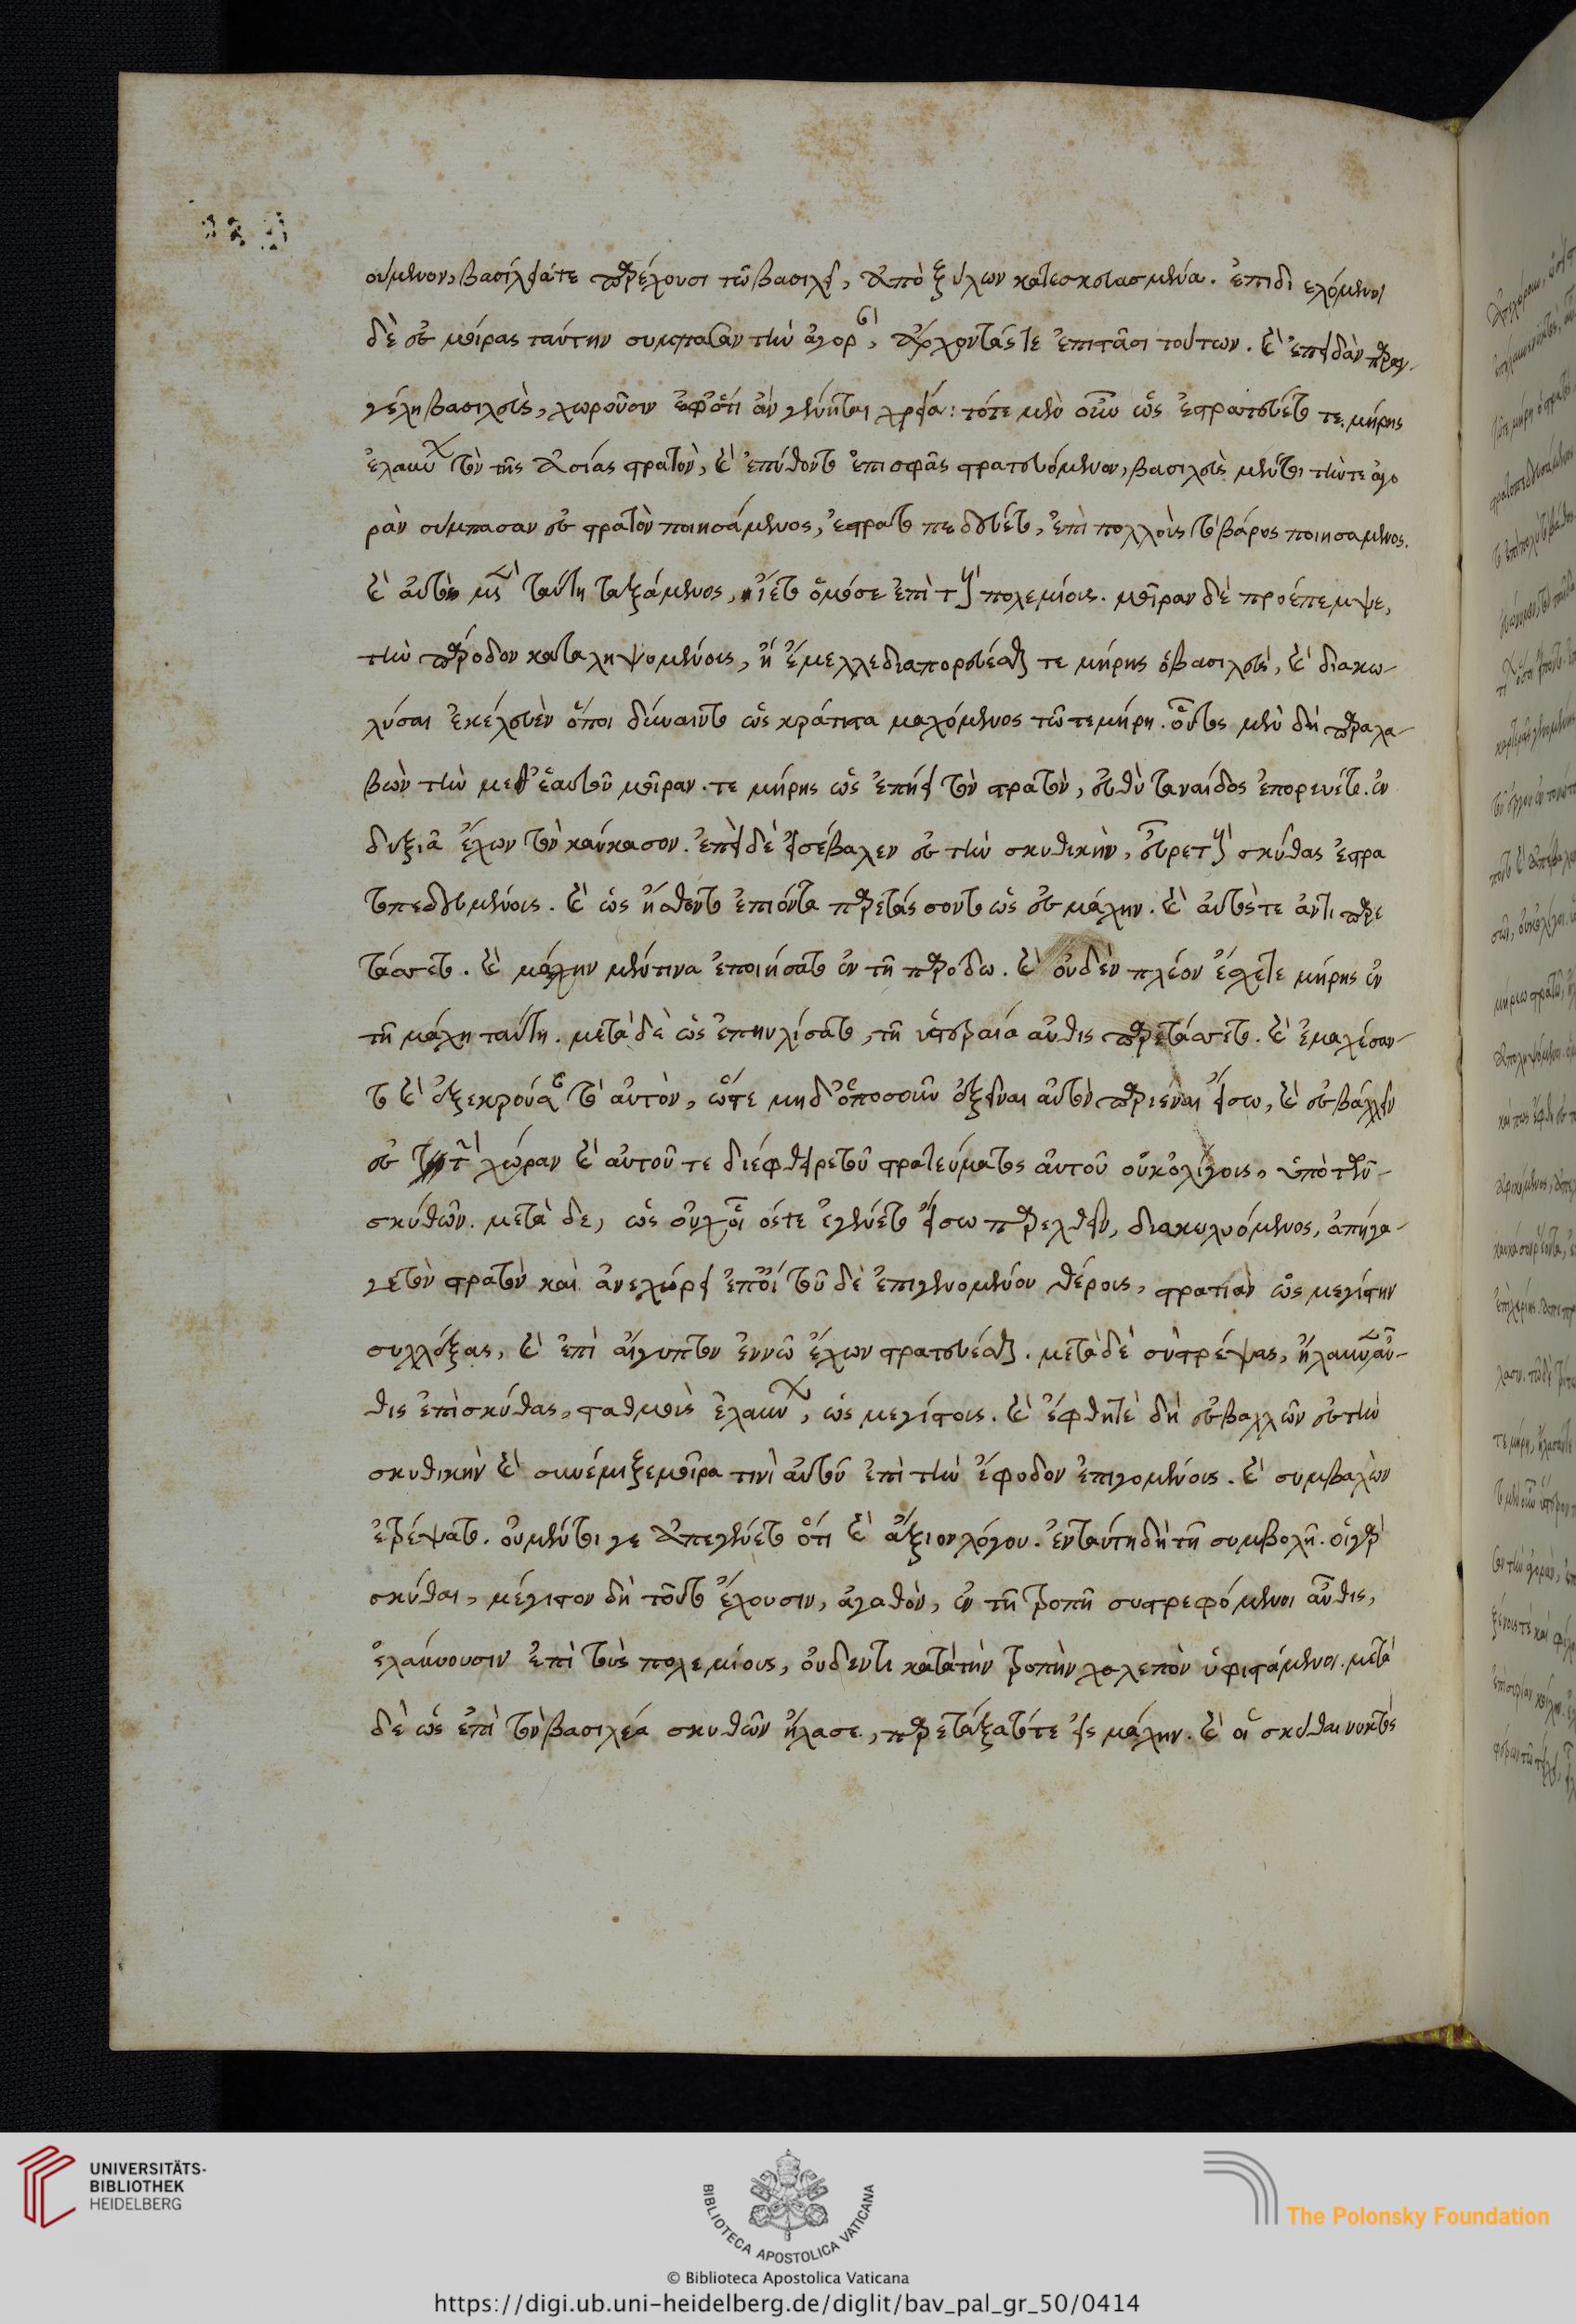 ούμενον, βασίλειά τε παρέχουσι τῶ βασιλεῖ, ἀπὸ ξύλων κατεσκευασμένα. ἐπιδιελόμενοι
δὲ ἐς μοίρας ταύτην σύμπασαν τὴν ἀγορὰν, ἄρχοντάς τε ἐπιτᾶσι τούτων. καὶ ἐπειδὰν παραγ-
γέλη βασιλεὺς, χωροῦσιν ἐφ' ὅτι ἂν γένηται χρεία: τότε μὲν οὖν ὡς ἐστρατεύετο τεμήρης
ἐλαύνων τὸν τῆς ἀσίας στρατὸν, καὶ ἐπύθοντο ἐπὶ σφᾶς στρατευόμενον, βασιλεὺς μέντοι τήν τε ἀγο
ρὰν σύμπασαν ἐς στρατὸν ποιησάμενος, ἐστρατοπεδεύετο, ἐπὶ πολλοὺς τὸ βάρος ποιησάμενος.
καὶ αὐτὸν μὲν ταύτη ταξάμενος, ἵετο ὁμόσε ἐπὶ τοὺς πολεμίους. μοῖραν δὲ προέπεμψε,
τὴν πάροδον καταληψομένους, ἧ ἔμελλε διαπορεύεσθαι τεμήρης ὁ βασιλεὺς, καὶ διακω-
λύσαι ἐκέλευεν ὅποι δύναιντο ὡς κράτιστα μαχόμενος τῶ τεμήρη. οὗτος μὲν δὴ παραλα-
βὼν τὴν μεθ' ἑαυτοῦ μοῖραν. τεμήρης ὡς ἐπήει τὸν στρατὸν, εὐθὺ ταναίδος ἐπορεύετο. ἐν
δεξιᾶ ἔχων τὸν καύκασον. ἐπεὶ δὲ εἰσέβαλεν ἐς τὴν σκυθικὴν, εὗρε τοὺς σκύθας ἐστρα
τοπεδευμένους. καὶ ὡς ἤσθοντο ἐπιόντα παρετάσσοντο ὡς ἐς μάχην. καὶ αὐτός τε ἀντιπαρε
τάσσετο. καὶ μάχην μέν τινα ἐποιήσατο ἐν τῆ παρόδω. καὶ οὐδὲν πλέον ἔσχε τεμήρης ἐν
τῆ μάχη ταύτη. μετὰ δὲ ὡς ἐπηυλίσατο, τῆ ὑστεραία αὖθις παρετάσσετο. καὶ ἐμαχέσαν-
το καὶ ἐξεκρούσαντο αὐτὸν, ὥστε μηδ' ὁποσοῦν ἐξεῖναι αὐτὸν παριέναι εἴσω, καὶ ἐσβάλλειν
ἐς τὴν χώραν καὶ αὐτοῦ τε διέφθειρε τοῦ στρατεύματος αὐτοῦ οὐκ ὀλίγους, ὑπὸ τῶν-
σκυθῶν. μετὰ δὲ, ὡς οὐχ οἷός τε ἐγένετο εἴσω παρελθεῖν, διακωλυόμενος, ἀπήγα-
γε τὸν στρατὸν καὶ ἀνεχώρει ἐπ' οἴκου τοῦ δὲ ἐπιγενομένου θέρους, στρατιὰν ὡς μεγίστην
συλλέξας, καὶ ἐπὶ αἴγυπτον ἐν νῶ ἔχων στρατεύεσθαι. μετὰ δὲ συστρέψας, ἤλαυνεν αὖ-
θις ἐπὶ σκύθας, σταθμοὺς ἐλαύνων, ὡς μεγίστους. καὶ ἔφθη τε δὴ ἐσβαλλὼν ἐς τὴν
σκυθικὴν καὶ συνέμιξε μοίρα τινὶ αὐτοῦ ἐπὶ τὴν ἔφοδον ἐπιγομένους. καὶ συμβαλὼν
ἐτρέψατο. οὐ μέντοι γε ἀπεγένετο ὅτι καὶ ἄξιον λόγου. ἐν ταύτη δὴ τῆ συμβολῆ. οἱ γὰρ
σκύθαι, μέγιστον δὴ τοῦτο ἔχουσιν, ἀγαθὸν, ἐν τῆ τροπῆ συστρεφόμενοι αὖθις,
ἐλαύνουσιν ἐπὶ τοὺς πολεμίους, οὐδέν τι κατὰ τὴν τροπὴν χαλεπὸν ὑφιστάμενοι. μετὰ
δὲ ὡς ἐπὶ τὸν βασιλέα σκυθῶν ἤλασε, παρετάξατό τε εἰς μάχην. καὶ οἱ σκύθαι νυκτὸς
UNIVERSITÄTS-
BIBLIOTHEK
HEIDELBERG
BIBLIOTECA APOSTOLICA VATICANA
The Polonsky Foundation
© Biblioteca Apostolica Vaticana
https://digi.ub.uni-heidelberg.de/diglit/bav_pal_gr_50/0414